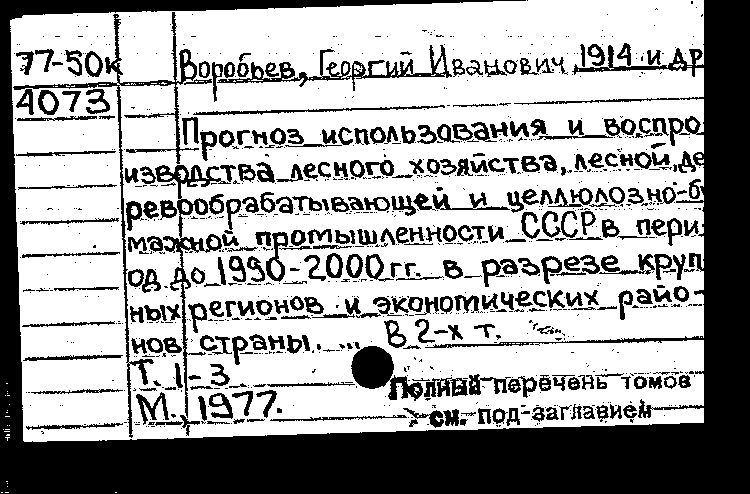 77-50к Воробьев, Георгий Иванович, 1914 и др
4073
Прогноз использования и воспро
изводства лесного хозяйства, лесной, де
ревообрабатывающей и целлюлозно-бу
мажной промышленности СССР в пери
од до 1990-2000 гг. в разрезе круп
ных регионов и экономических райо-
нов страны. ... В 2-х т.
Т. 1-3
М., 1977.
Полный перечень томов
см. под заглавием